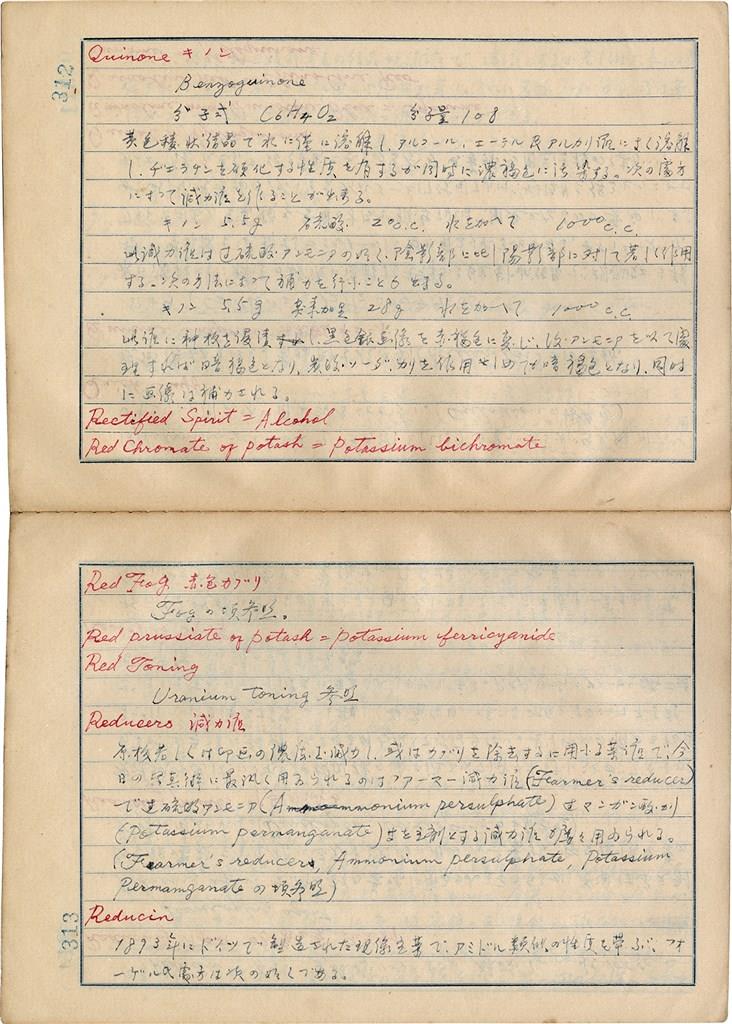 312
Quinone キノン
Benzoquinone
分子式 C6H4O2 分子量 108
黄色稜状結晶で水に僅に溶解し、アルコール、エーテル及アルカリ液によく溶解
し、ゼラチンを硬化する性質を有するが同時に濃褐色に染着する。次の處方
によって減力液を作ることが出来る。
キノン 5.5g 硫酸 2c.c. 水を加へて 1000c.c.
此減力液は過硫酸アンモニアの如く、陰影部に比し陽影部に対して著しく作用
する。次の方法によって補力を行ふことも出来る。
キノン 5.5g 臭素加里 28g 水を加へて 1000c.c.
此液に種板を浸漬し、黒色銀画像を赤褐色に変じ、後アンモニアを以て處
理すれば暗褐色となり、炭酸ソーダ を作用せしめても暗褐色となり、同時
に画像は補力される。
Rectified Spirit = Alcohol
Red Chromate of potash = Potassium bichromate
Red Fog 赤色カブリ
Fogの項参照。
Red prussiate of potash = Potassium ferricyanide
Red Toning
Uranium toning 参照
Reducers 減力液
原板若しくは印画の濃度を減力し、或はカブリを除去するに用ふる薬液で、今
日の写真術に最汎く用ゐられるのはファーマー減力液(Fearmer's reducer)
で過硫酸アンモニア(Ammonium persulphate)マンガン酸加里
(Potassium permanganate)を主剤とする減力液が用ゐられる。
(Fearmer's reducers, Ammonium persulphate, Potassium
Permamganate の項参照)
Reducin
1893年にドイツで製造された現像主薬で、アミドル類似の性質を帯ぶ、フォ
ーゲル氏處方は次の如くである。
313